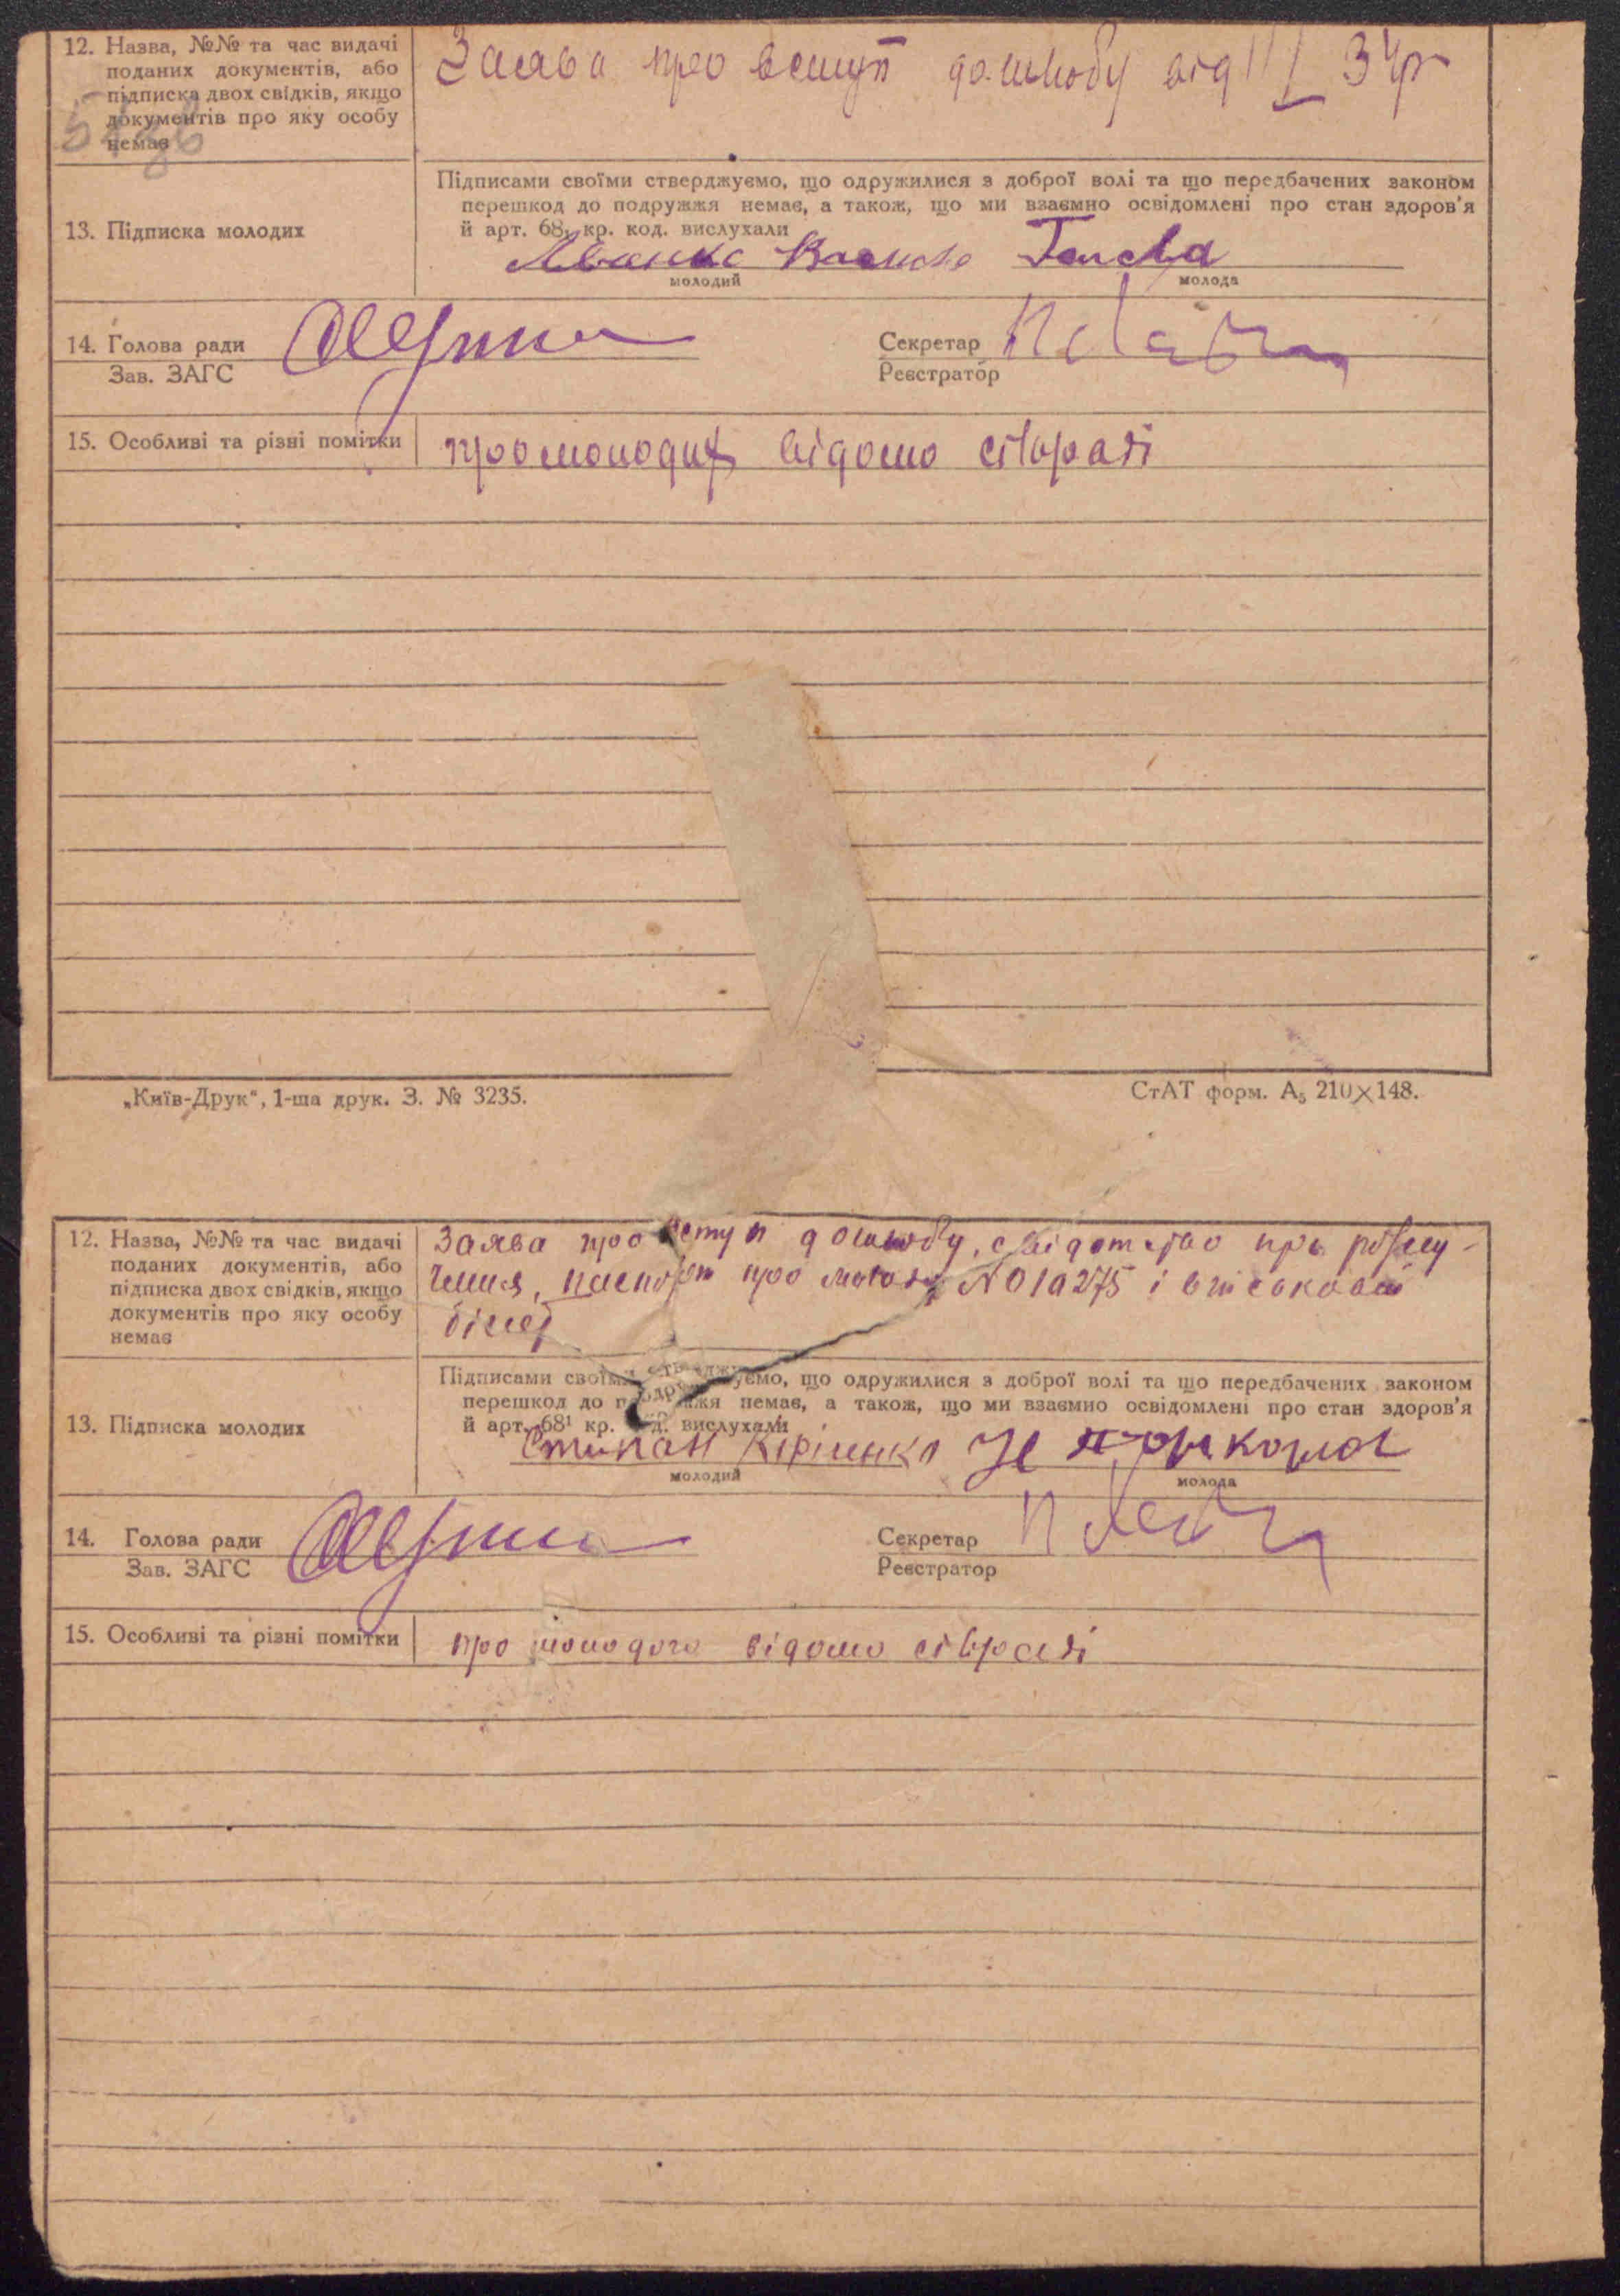 12. Назва, №№ та час видачі
поданих документів, або
підписка двох свідків, якщо
документів про яку особу
немає
Заява про вступ до шлюбу від 34р
13. Підписка молодих
Підписами своїми стверджуємо, що одружилися з доброї волі та що передбачених законом
перешкод до подружжя немає, а також, що ми взаємно освідомлені про стан здоров'я
й арт. 68¹ кр. код. вислухали
молодий
молода
14. Голова ради
Зав. ЗАГС
Секретар
Реєстратор
15. Особливі та різні помітки
про молодих відомо сільраді
„Київ-Друк", 1-ша друк. З. № 3235.
СтАТ форм. А₅ 210×148.
12. Назва, №№ та час видачі
поданих документів, або
підписка двох свідків, якщо
документів про яку особу
немає
Заява про вступ до шлюбу, свідотство про розлу-
чення, паспорт про молоду і військовий
білет
13. Підписка молодих
Підписами своїми стверджуємо, що одружилися з доброї волі та що передбачених законом
перешкод до подружжя немає, а також, що ми взаємно освідомлені про стан здоров'я
й арт. 68¹ кр. код. вислухали
молодий
молода
14. Голова ради
Зав. ЗАГС
Секретар
Реєстратор
15. Особливі та різні помітки
про молодого відомо сільраді